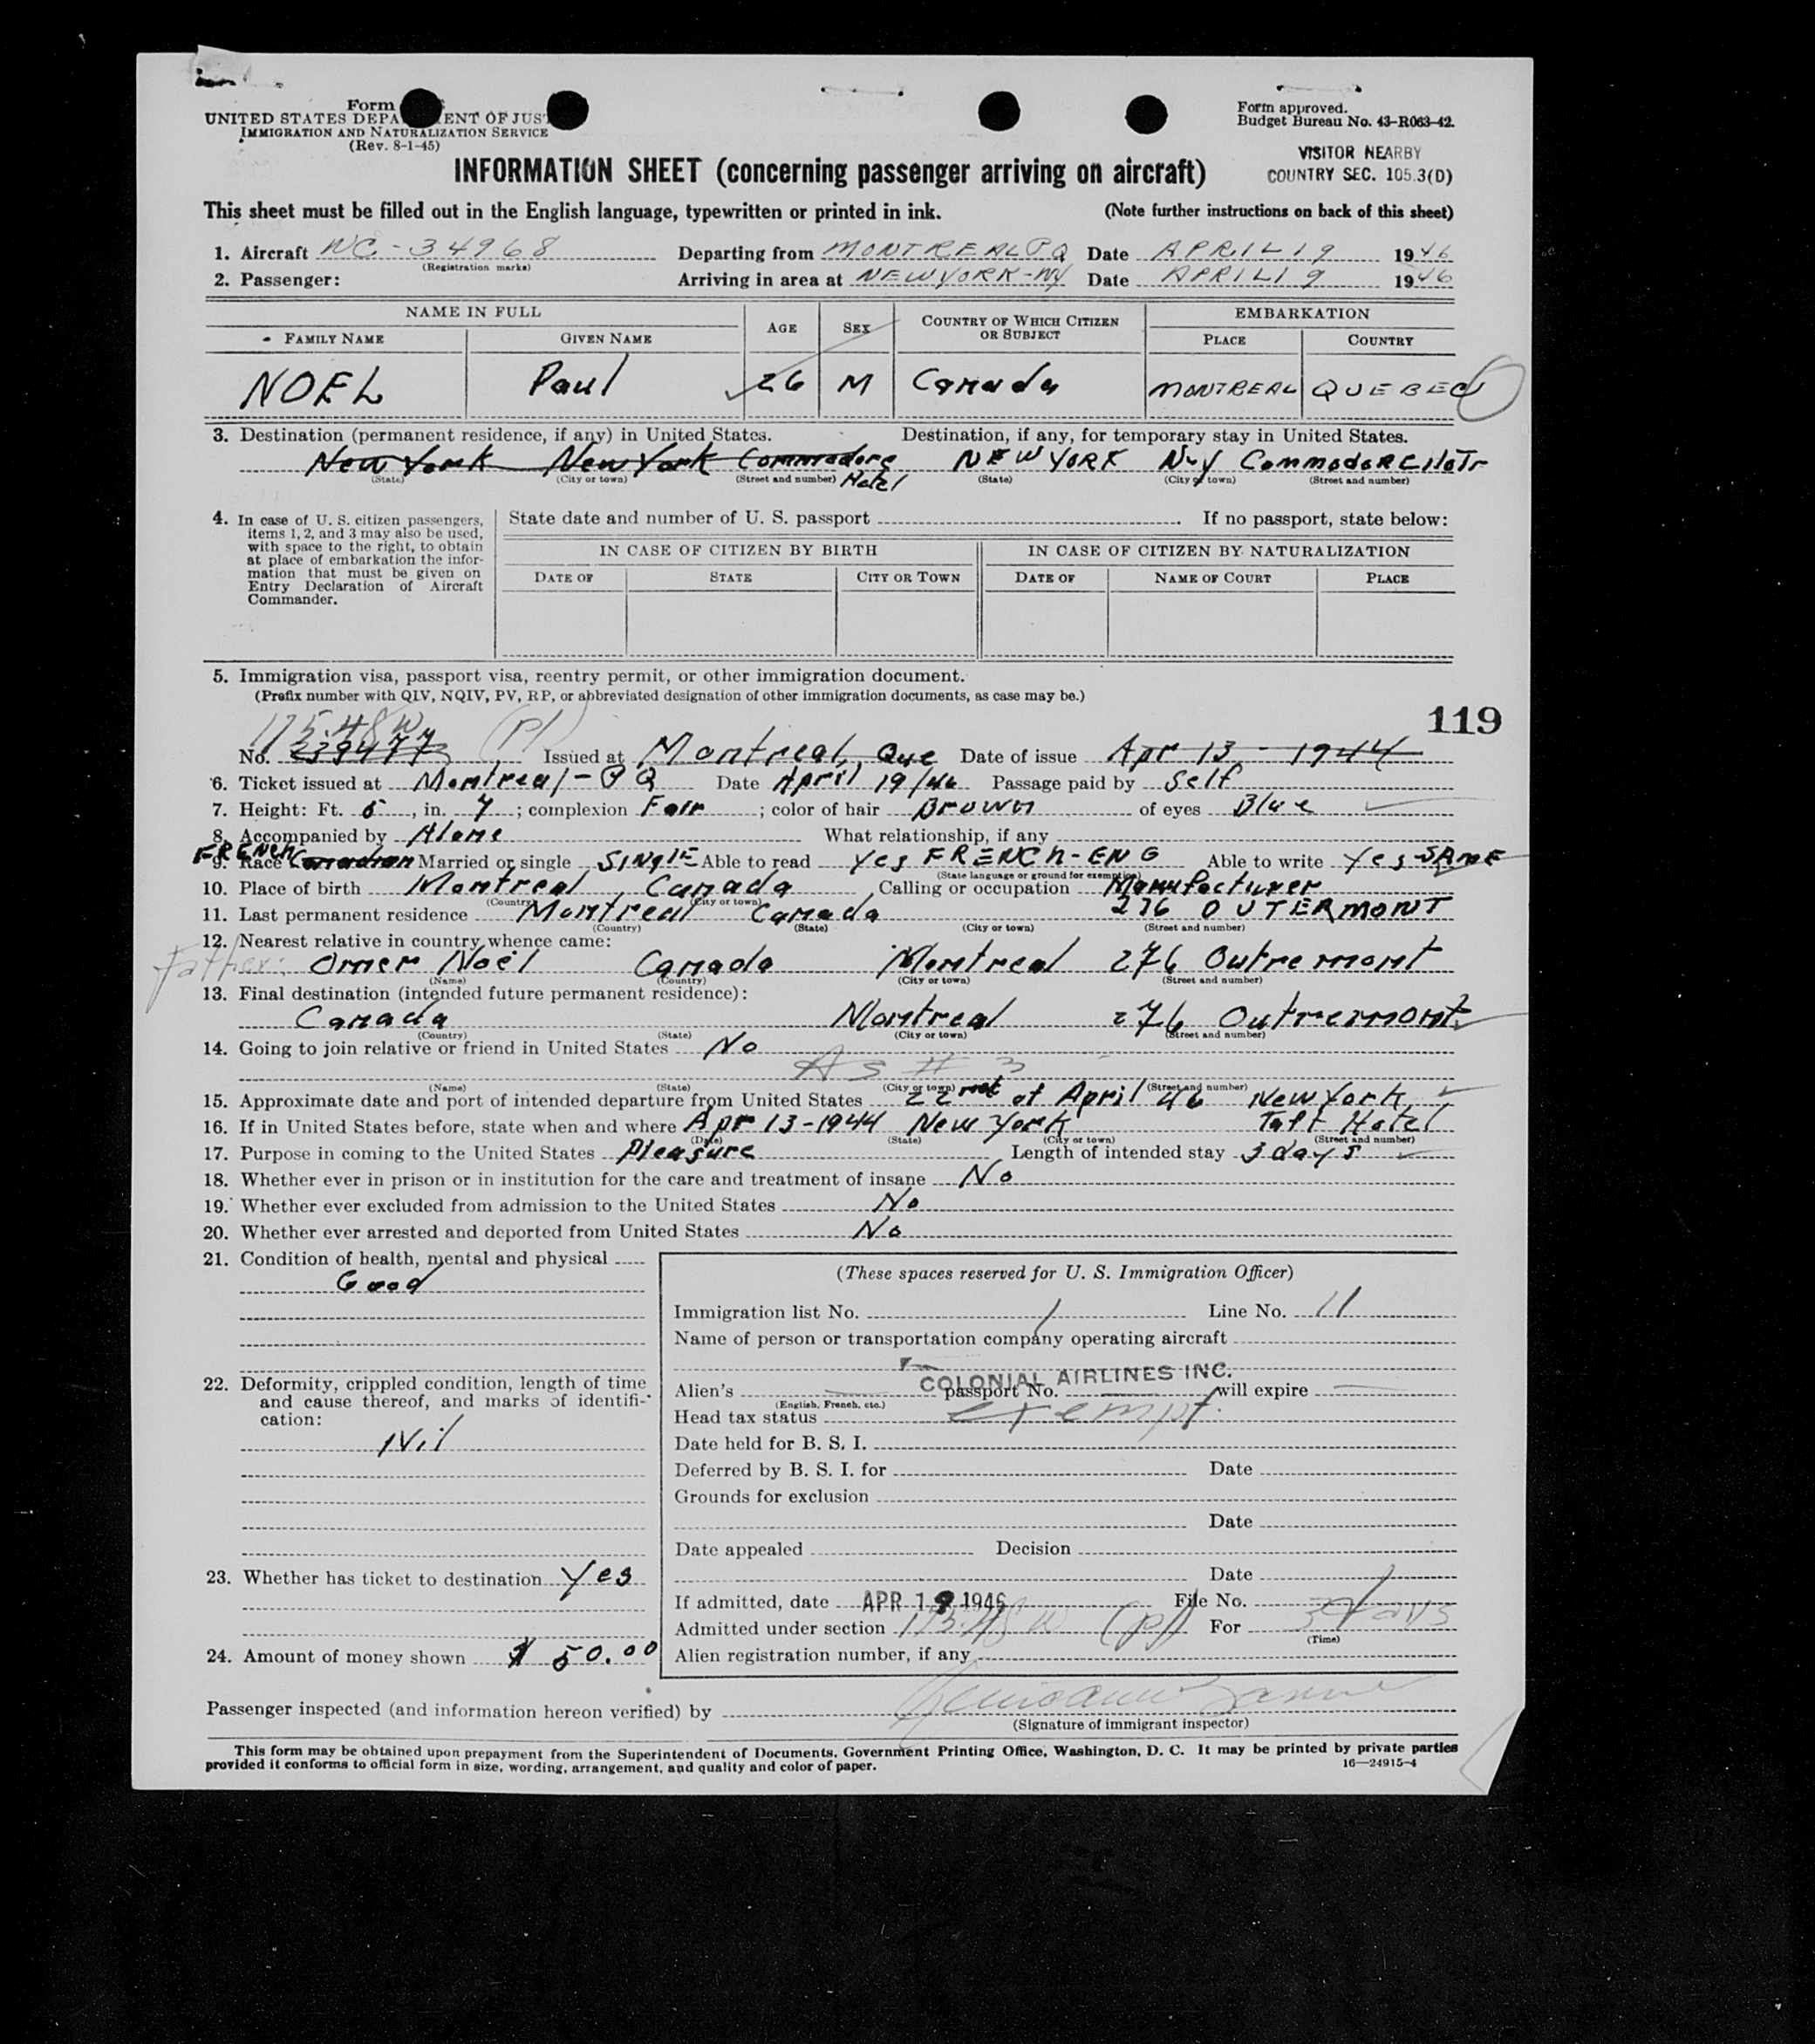 Form
UNITED STATES DEPA ENT OF JUS
IMMIGRATION AND NATURALIZATION SERVICE
(Rev. 8-1-45)
Form approved.
Budget Bureau No. 43-R063-42.
VISITOR NEARBY
COUNTRY SEC. 105.3(D)
INFORMATION SHEET (concerning passenger arriving on aircraft)
This sheet must be filled out in the English language, typewritten or printed in ink. (Note further instructions on back of this sheet)
1. Aircraft NC-34968 Departing from MONTREAL PQ Date APRIL 19 1946
(Registration marks)
2. Passenger: Arriving in area at NEW YORK-NY Date APRIL 19 1946
NAME IN FULL AGE SEX COUNTRY OF WHICH CITIZEN OR SUBJECT EMBARKATION
FAMILY NAME GIVEN NAME PLACE COUNTRY
NOEL Paul 26 M Canada MONTREAL QUEBEC
3. Destination (permanent residence, if any) in United States. Destination, if any, for temporary stay in United States.
New York New York Commodore Hotel NEW YORK N-Y Commodore
(State) (City or town) (Street and number) (State) (City or town) (Street and number)
4. In case of U. S. citizen passengers, items 1, 2, and 3 may also be used, with space to the right, to obtain at place of embarkation the information that must be given on Entry Declaration of Aircraft Commander.
State date and number of U. S. passport . If no passport, state below:
IN CASE OF CITIZEN BY BIRTH IN CASE OF CITIZEN BY NATURALIZATION
DATE OF STATE CITY OR TOWN DATE OF NAME OF COURT PLACE
5. Immigration visa, passport visa, reentry permit, or other immigration document.
(Prefix number with QIV, NQIV, PV, RP, or abbreviated designation of other immigration documents, as case may be.)
119
No. Issued at Montreal, Que Date of issue Apr 13 - 1944
6. Ticket issued at Montreal - P Q Date April 19/46 Passage paid by Self
7. Height: Ft. 5, in. 7; complexion Fair; color of hair Brown of eyes Blue
8. Accompanied by Alone What relationship, if any
FRENCH
9. Race Canadian Married or single SINGLE Able to read Yes FRENCH-ENG Able to write Yes-SAME
(State language or ground for exemption)
10. Place of birth Montreal, Canada Calling or occupation Manufacturer
(Country) (City or town)
11. Last permanent residence Montreal Canada 276 OUTERMONT
(Country) (State) (City or town) (Street and number)
12. Nearest relative in country whence came:
Father: Omer Noël Canada Montreal 276 Outremont
(Name) (Country) (City or town) (Street and number)
13. Final destination (intended future permanent residence):
Canada Montreal 276 Outremont
(Country) (State) (City or town) (Street and number)
14. Going to join relative or friend in United States No
As # 3
(Name) (State) (City or town) (Street and number)
15. Approximate date and port of intended departure from United States 22 of April 46 New York
16. If in United States before, state when and where Apr 13-1944 New York Taft Hotel
(Date) (State) (City or town) (Street and number)
17. Purpose in coming to the United States Pleasure Length of intended stay 3 days
18. Whether ever in prison or in institution for the care and treatment of insane No
19. Whether ever excluded from admission to the United States No
20. Whether ever arrested and deported from United States No
21. Condition of health, mental and physical
Good
22. Deformity, crippled condition, length of time and cause thereof, and marks of identification:
Nil
23. Whether has ticket to destination Yes
24. Amount of money shown $ 50.00
(These spaces reserved for U. S. Immigration Officer)
Immigration list No. 1 Line No. 11
Name of person or transportation company operating aircraft
COLONIAL AIRLINES INC.
Alien's passport No. will expire
(English, French, etc.)
Head tax status exempt.
Date held for B. S. I.
Deferred by B. S. I. for Date
Grounds for exclusion
Date
Date appealed Decision
Date
If admitted, date APR 19 1946 File No.
Admitted under section For 3 days
(Time)
Alien registration number, if any
Passenger inspected (and information hereon verified) by
(Signature of immigrant inspector)
This form may be obtained upon prepayment from the Superintendent of Documents, Government Printing Office, Washington, D. C. It may be printed by private parties
provided it conforms to official form in size, wording, arrangement, and quality and color of paper. 16—24915-4